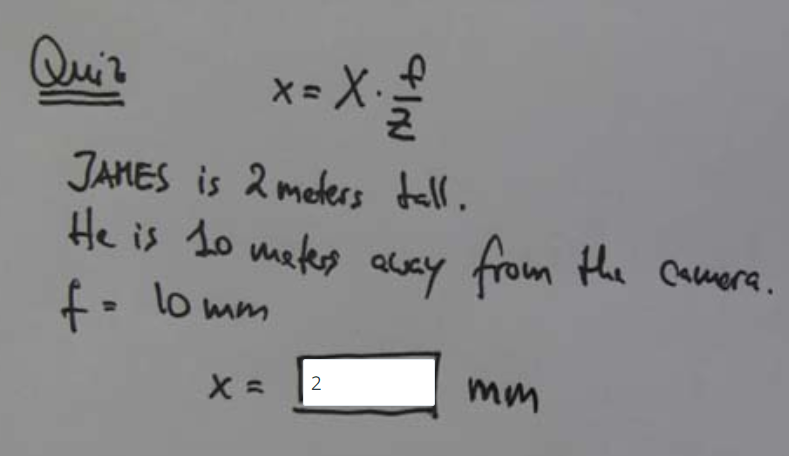 Quiz
x = X · f/Z
JAMES is 2 meters tall.
He is 10 meters away from the camera.
f = 10 mm
x = 2 mm